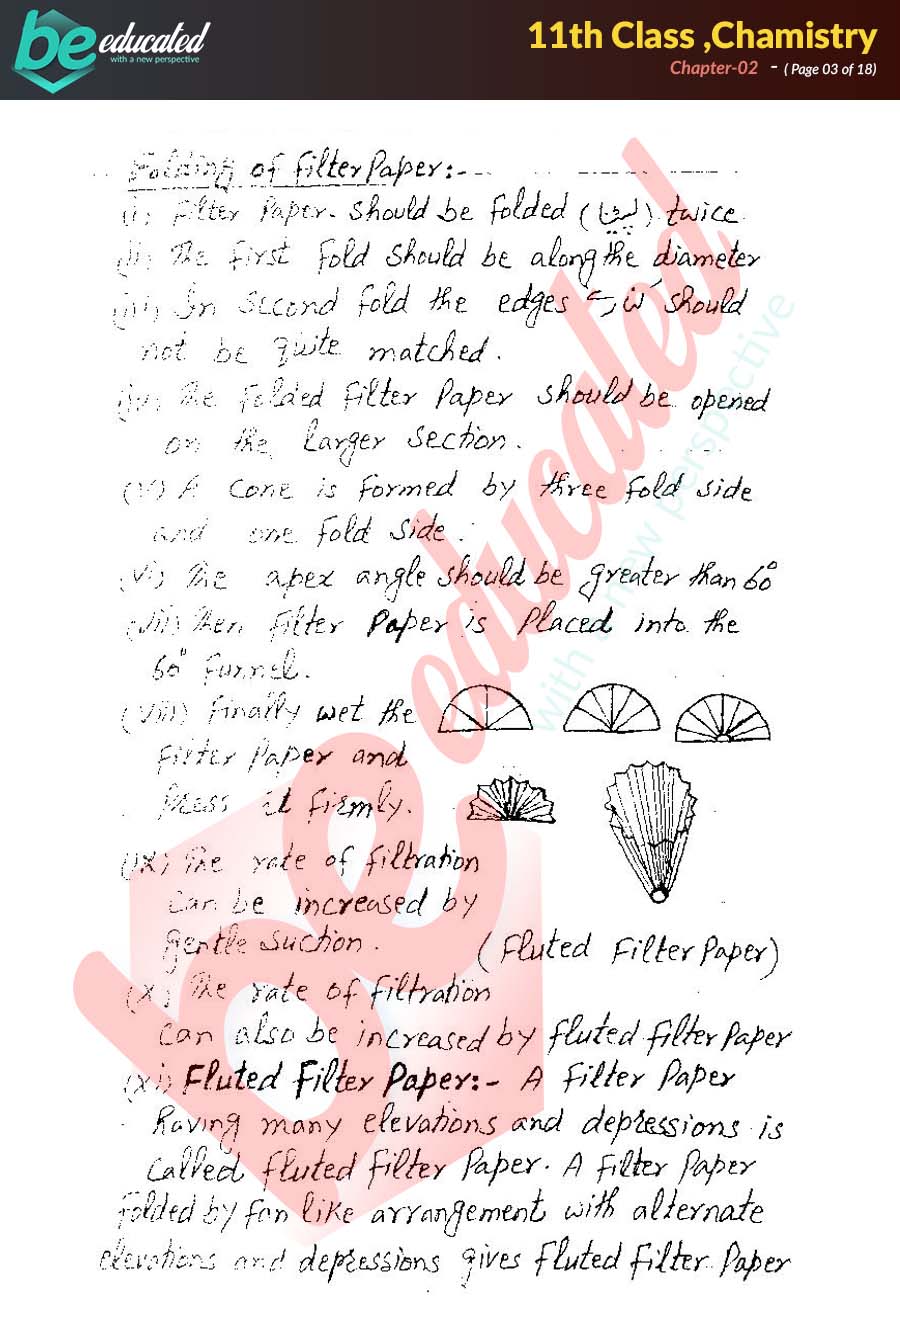 be educated
with a new perspective
11th Class ,Chamistry
Chapter-02 - ( Page 03 of 18)
Folding of Filter Paper:-
(i) Filter Paper. Should be folded ( لپیٹنا ) twice
(ii) The first fold should be along the diameter
(iii) In second fold the edges کنارے should
not be quite matched.
(iv) The folded filter Paper should be opened
on the larger section.
(v) A cone is formed by three fold side
and one fold side.
(vi) The apex angle should be greater than 60°
(vii) Then filter Paper is Placed into the
60° funnel.
(viii) Finally wet the
filter Paper and
Press it firmly.
(ix) The rate of filtration
can be increased by
gentle suction.
(Fluted Filter Paper)
(x) The rate of filtration
can also be increased by fluted filter Paper
(xi) Fluted Filter Paper:- A Filter Paper
having many elevations and depressions is
called fluted filter Paper. A filter Paper
folded by fan like arrangement with alternate
elevations and depressions gives fluted filter Paper
be educated
with a new perspective